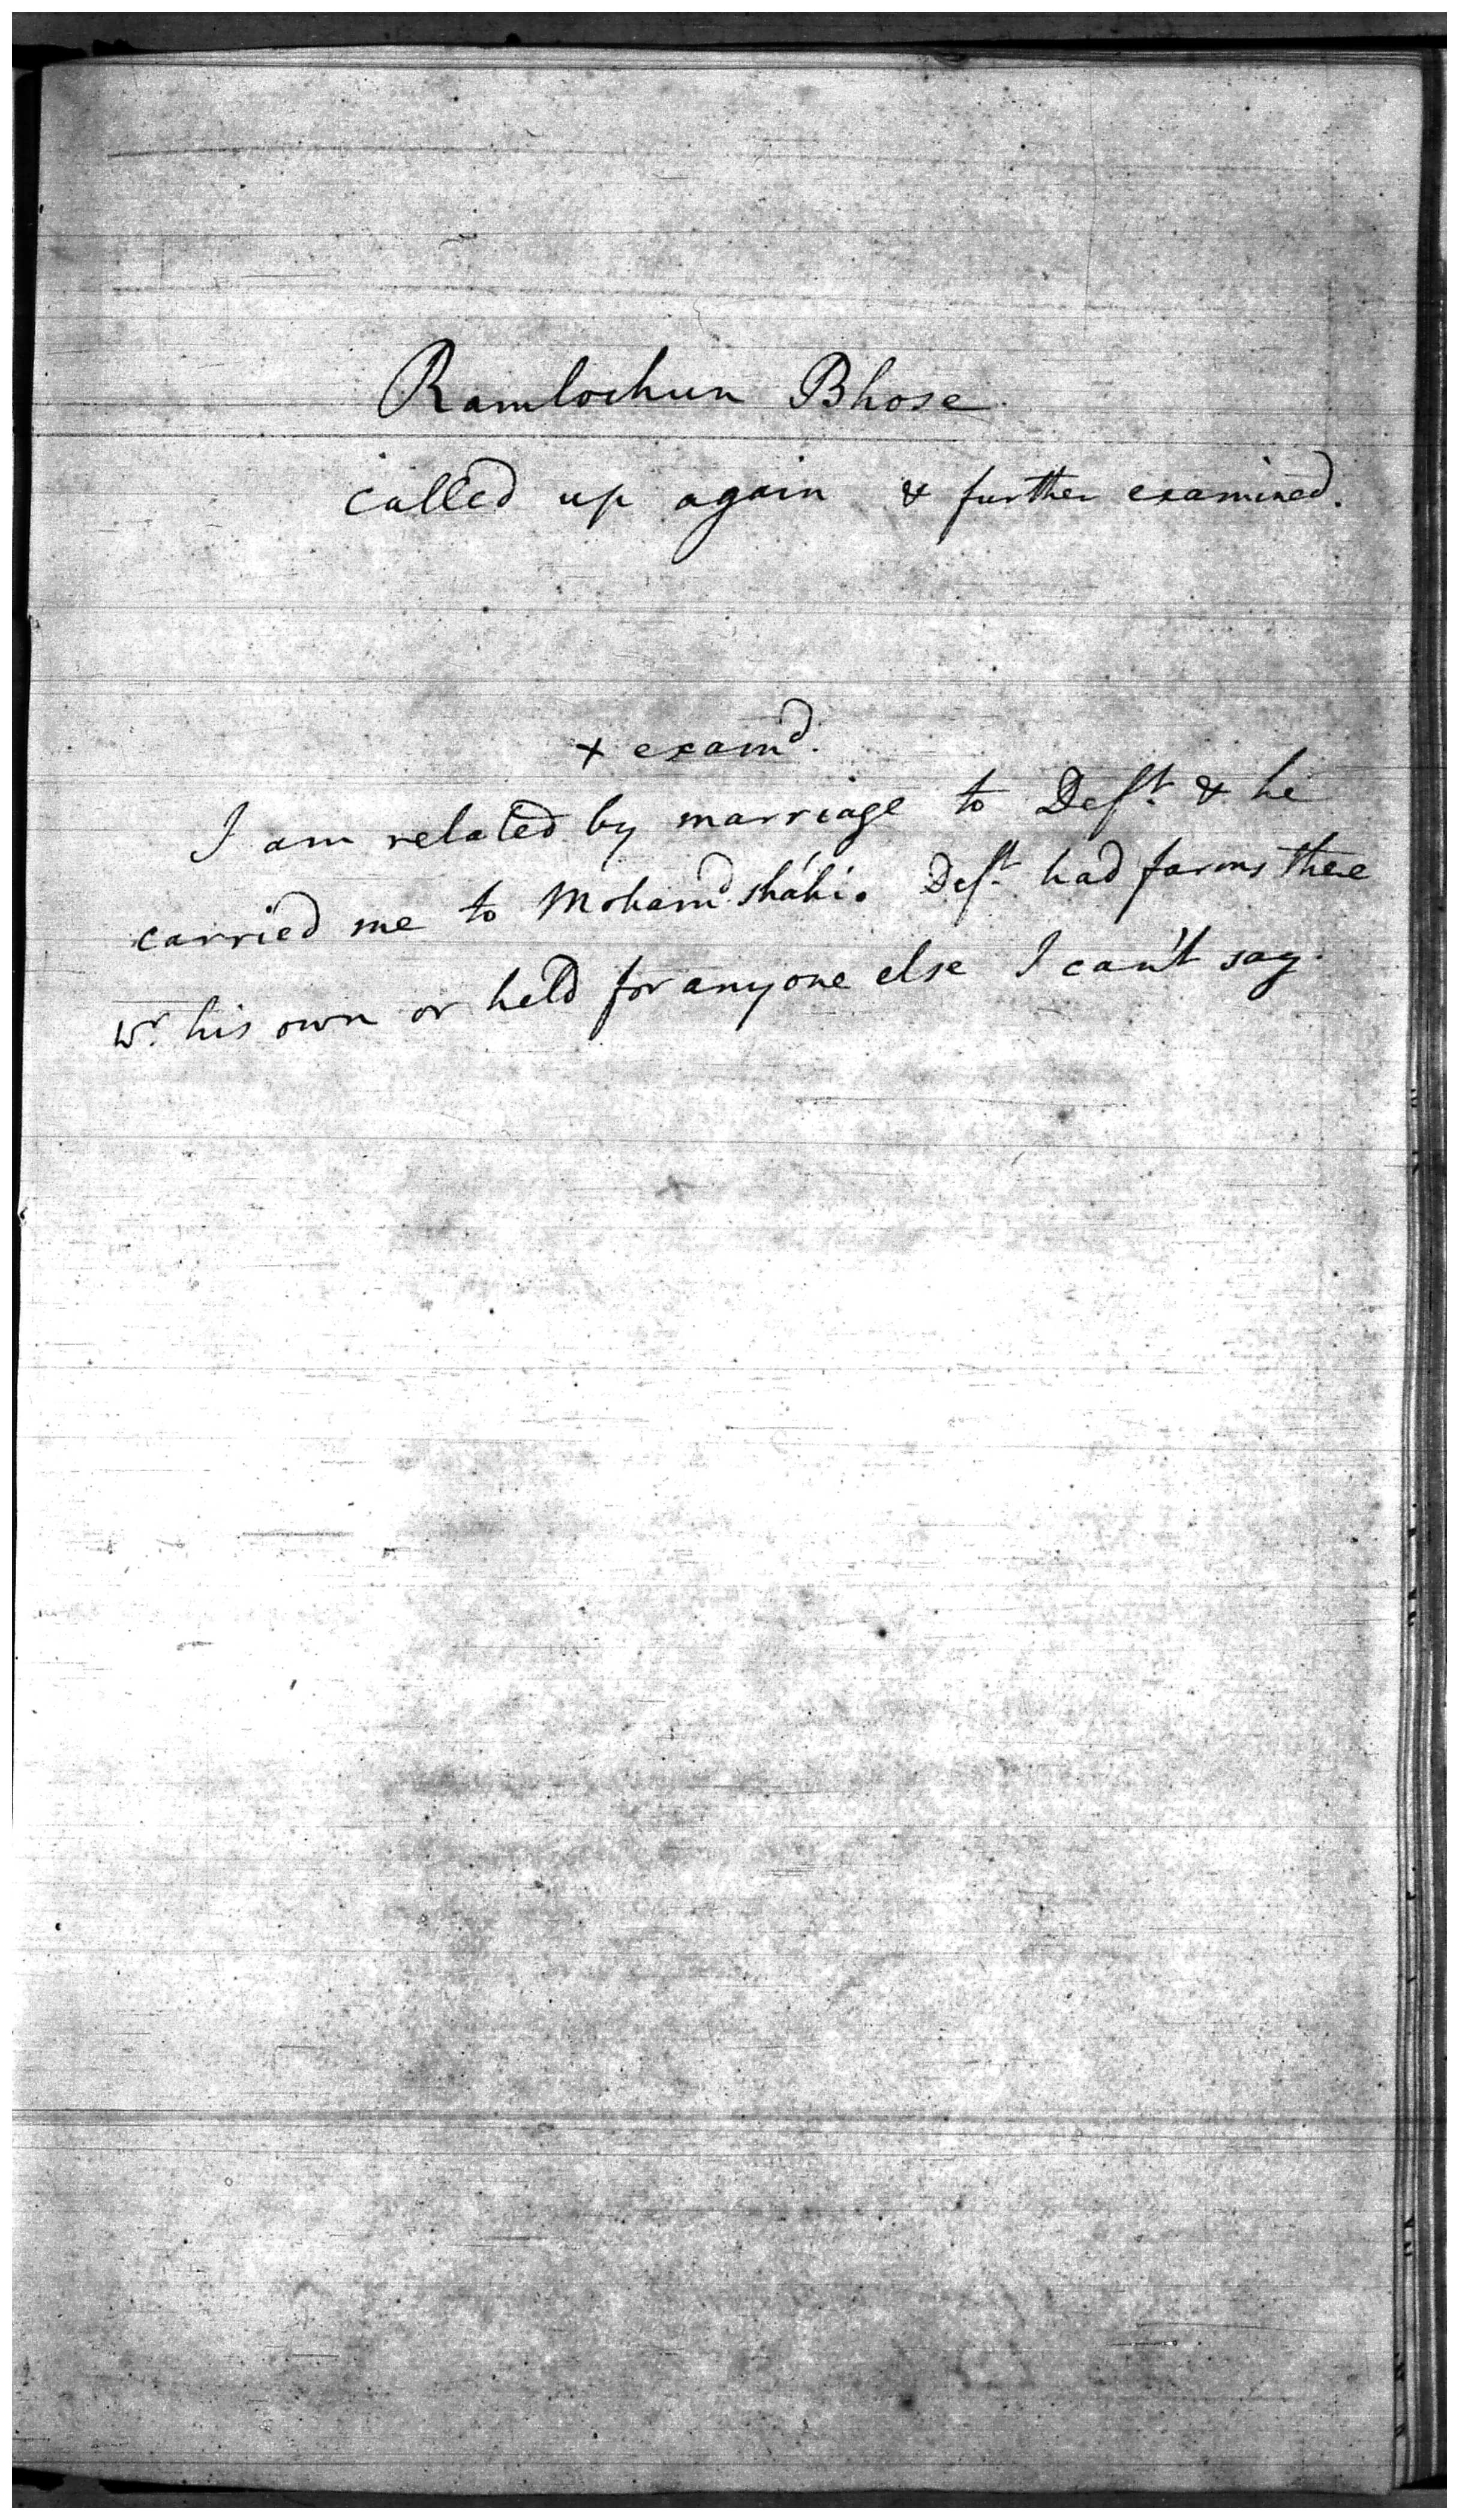 Ramlochun Bhose
called up again & further examined.
x examd.
I am related by marriage to Deft. & he
carried me to Mohamdsháhi. Deft. had farms there
wr. his own or held for anyone else I can't say.